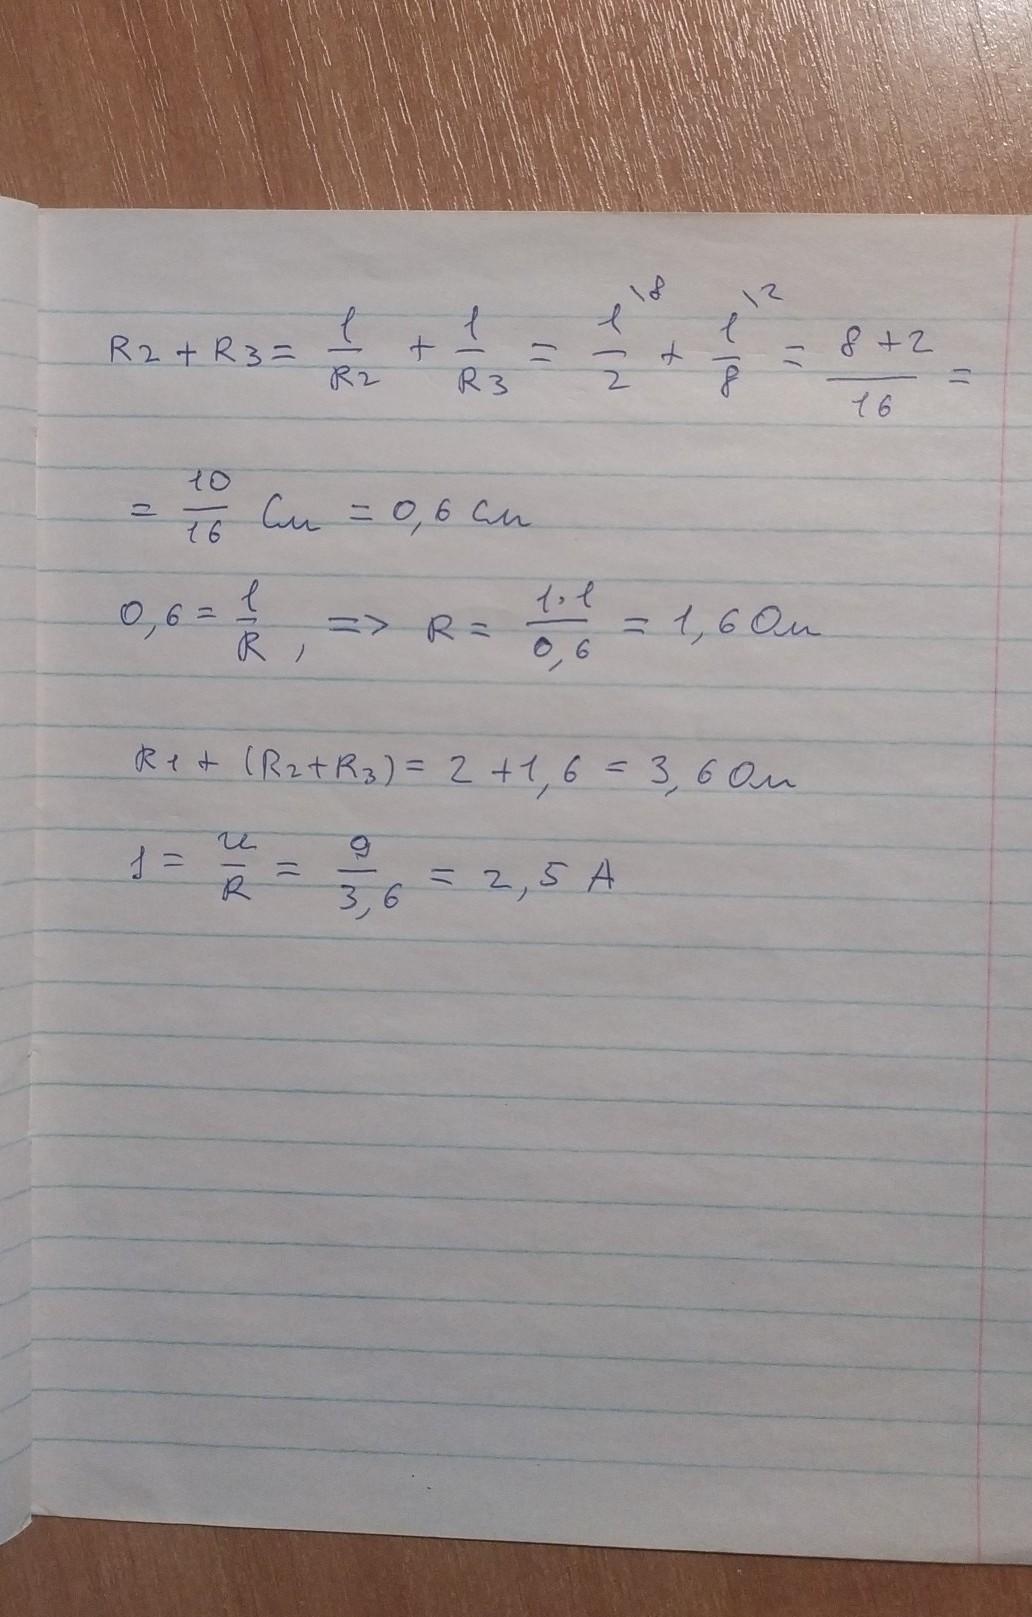 R2 + R3 = 1/R2 + 1/R3 = 1\8/2 + 1\2/8 = 8+2/16 =
= 10/16 См = 0,6 См
0,6 = 1/R, => R = 1·1/0,6 = 1,6 Ом
R1 + (R2+R3) = 2 + 1,6 = 3,6 Ом
I = U/R = 9/3,6 = 2,5 А